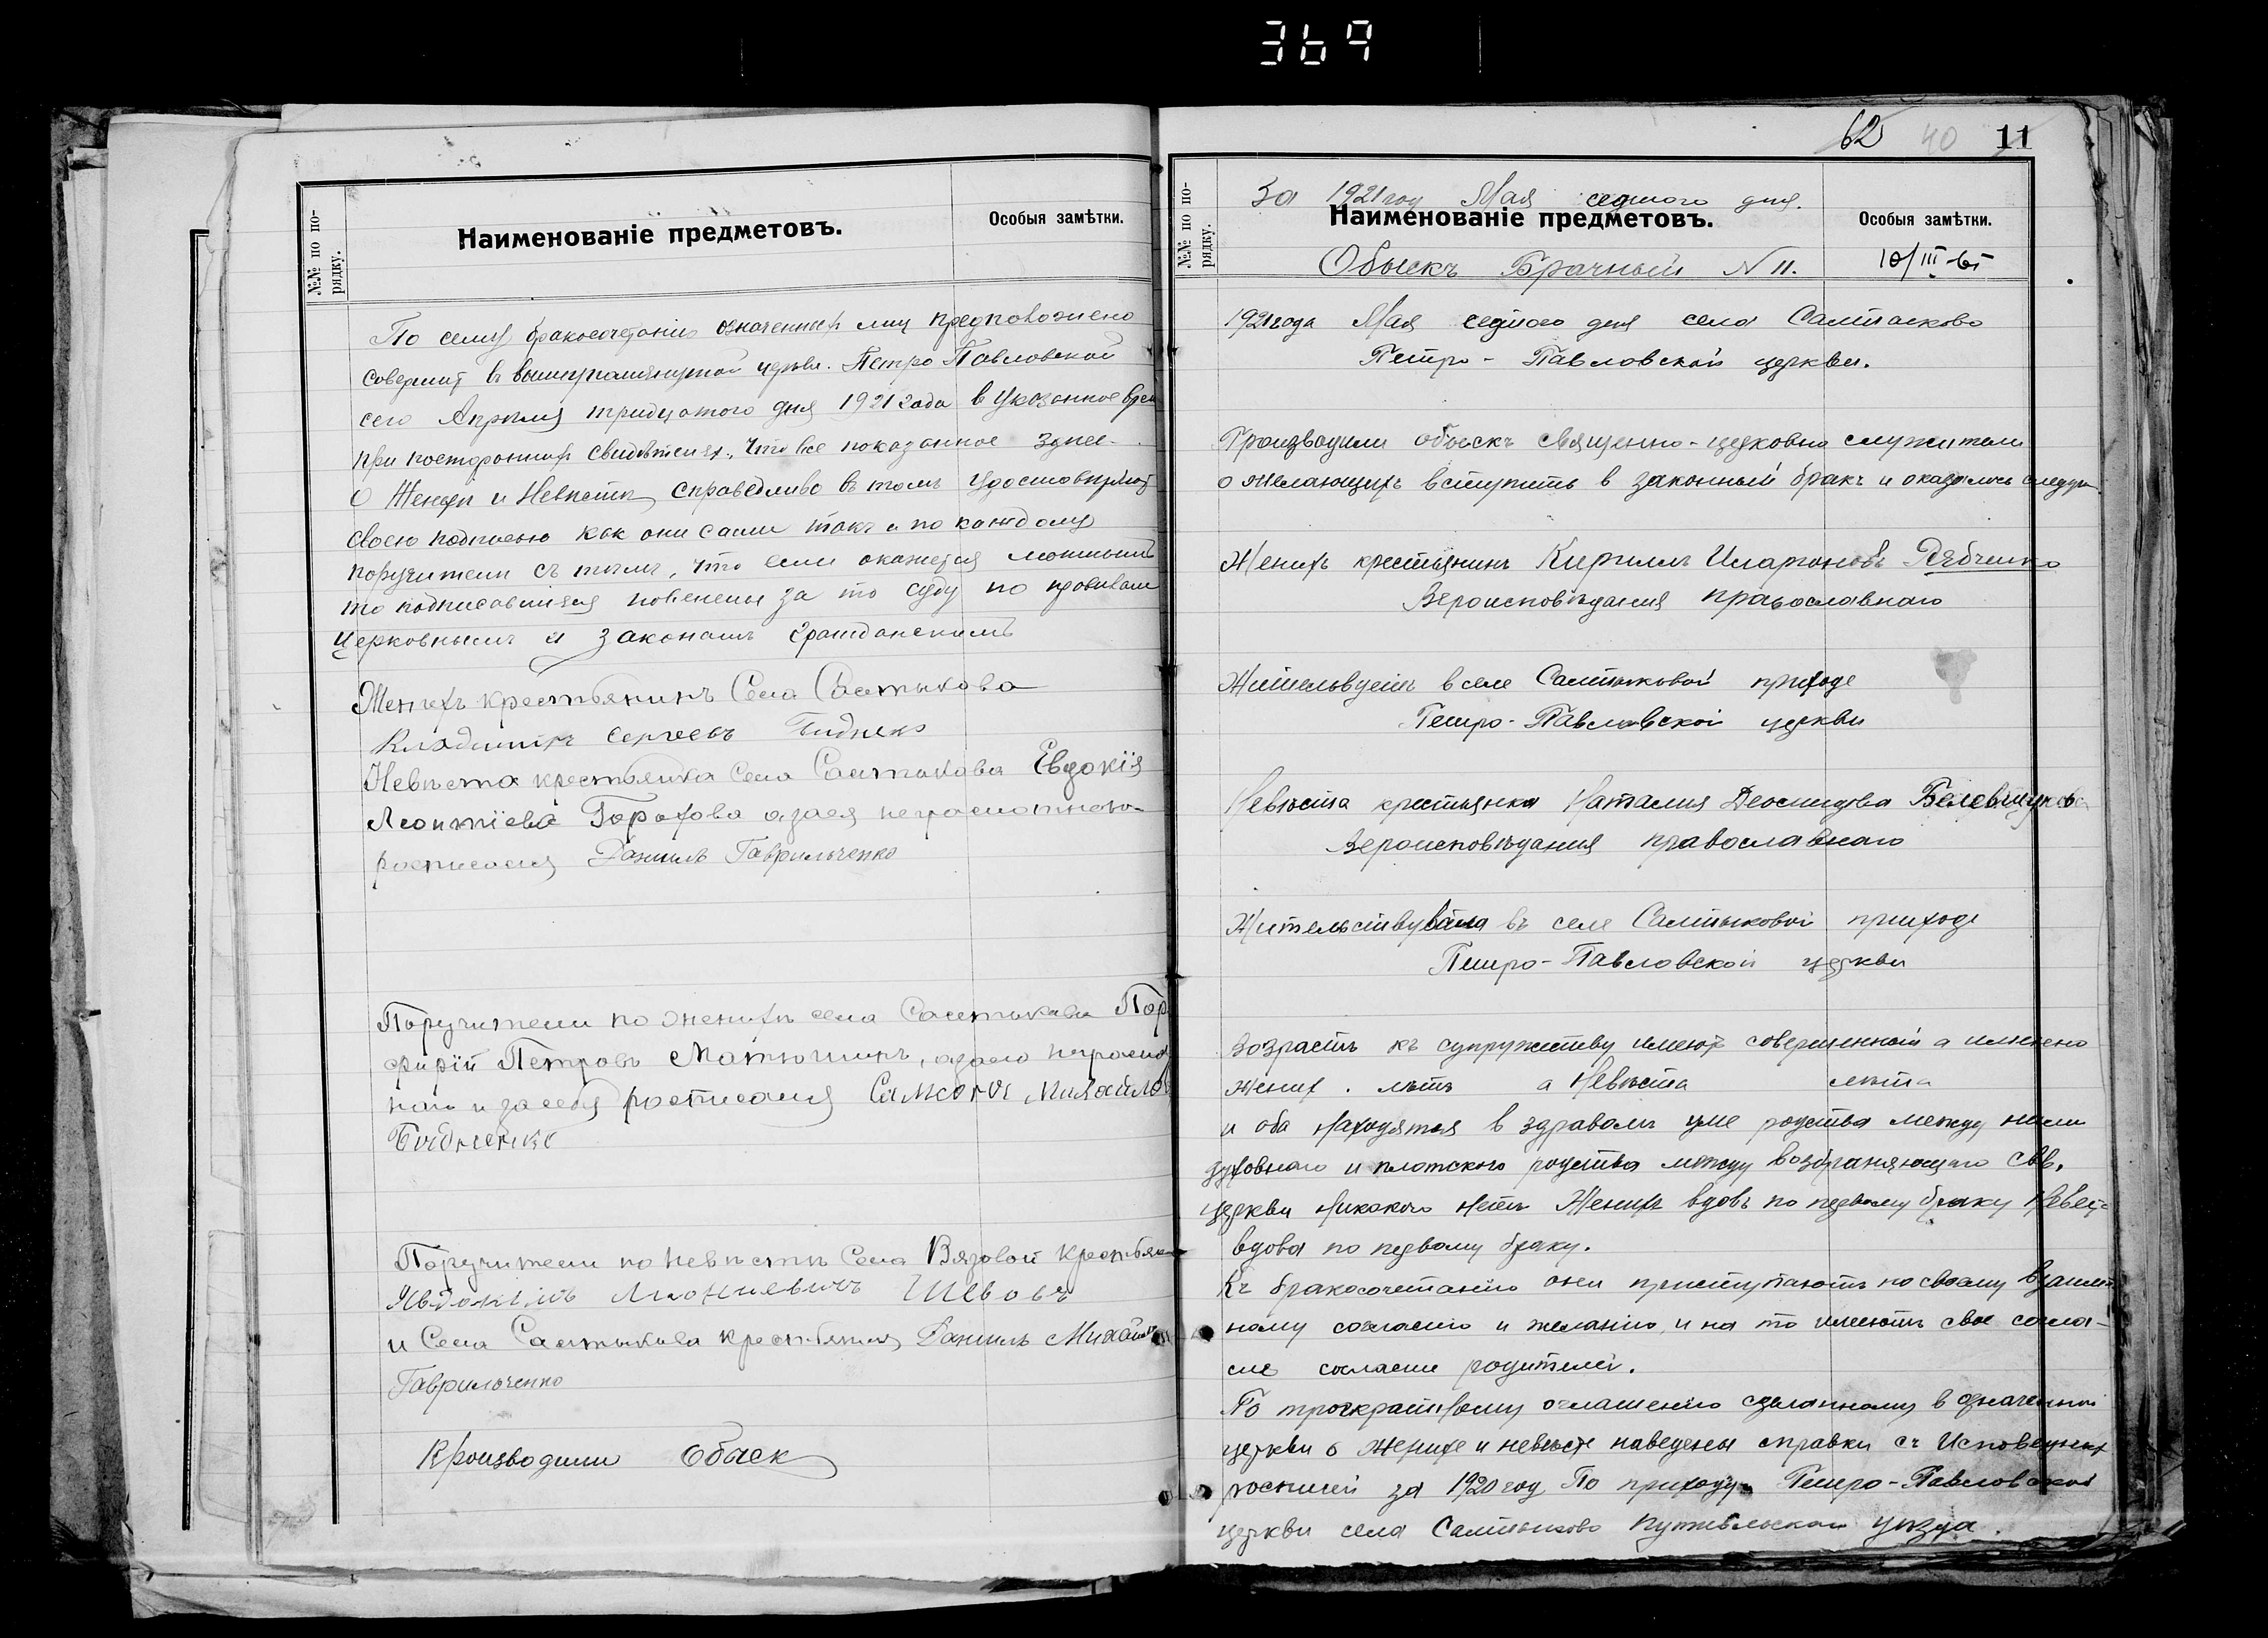 369
№№ по по-
рядку.
Наименованіе предметовъ.
Особыя замѣтки.
По сему бракосочетанію означенных лиц предположено
совершит в вышеупомянутой церкви. Петро Павловской
сего Апрѣля тридцатого дня 1921 года в указонное врем
при посторонних свидѣтелях, что все показанное здесе
О Женихе и Невѣсте справедливо в томъ удостовѣряют
своею подписью как они сами такъ и по каждому
поручители съ тѣмъ, что если окажется ложнымъ
то подписавшіяся повенены за то суду по правилам
церковнымъ и законамъ гражданскимъ
Женихъ крестьянинъ Села Салтыкова
Владимиръ Сергеевъ Бидненко
Невѣста крестьянка Села Салтыкова Евдокія
Леонтіева Горохова а за ея неграмотною
росписался Данилъ Гаврильченко
Поручители по женихѣ села Салтыкова Пор
фирій Петровъ Матюшинъ, а за его неграмот
наго и за себя росписался Самсонъ Михайлов
Бидненко
Поручители по невѣстѣ Села Вязовой крестьян
Евдокимъ Шевовъ
и Села Салтыкова крестьянин Данилъ Михайлов
Гаврильченко
Производили Обыск
62 40 11
№№ по по-
рядку.
За 1921 год Мая седмого дня.
Наименованіе предметовъ.
Особыя замѣтки.
Обыскъ Брачный N 11.
10/III-61
1921 года Мая седмого дня села Салтыково
Петро-Павловской церкви.
Производили обыскъ священно-церковно служители
о желающихъ вступить в законный бракъ и оказалось следую
Женихъ крестьянинъ Кириллъ Иларионовъ Рябченко
Вероисповѣдания православнаго
Жительвуетъ в селе Салтыковой приходе
Петро-Павловской церкви
Невѣста крестьянка Наталия Деомидова
Вероисповѣдания православнаго
Жительствувала въ селе Салтыковой приходе
Петро-Павловской церкви
Возрастъ къ супружеству имеют совершенный а имѣнно
жених. лѣтъ а Невѣста лѣта
и оба находятся в здравомъ уме родства между ними
духовнаго и плотского родства между возбраняющаго свв.
церкви никакого нетъ Женихъ вдовъ по первому браку Невес-
вдова по первому браку.
Къ бракосочетанію они приступаютъ по своему взаим
ному согласию и желанію, и на то имеютъ свое согла-
сие согласие родителей.
По троекратному оглашенію сделанному в означенной
церкви о женихе и невѣсте наведены справки съ Исповедных
росписей за 1920 год По приходу Петро-Павловской
церкви села Салтыково Путивльскаго уѣзда.